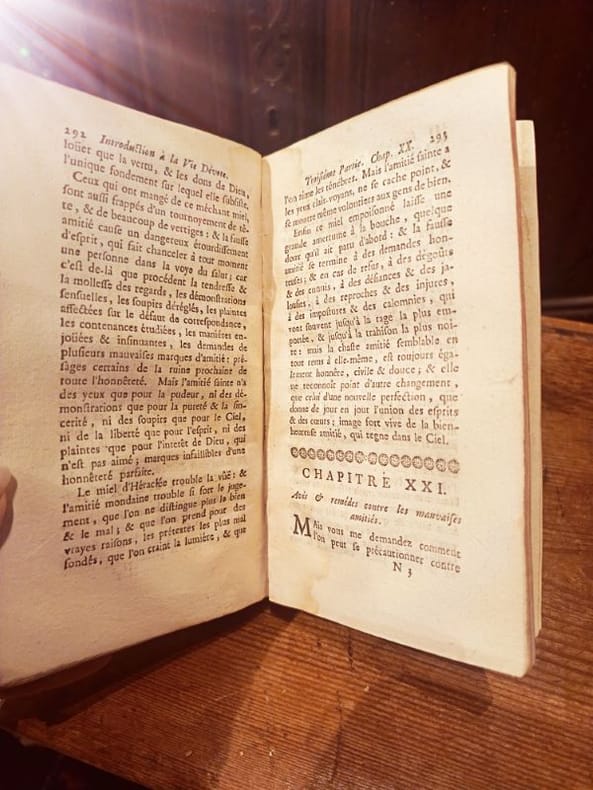 292 Introduction à la Vie Dévote.
loüer que la vertu, & les dons de Dieu,
l'unique fondement sur lequel elle subsiste.
Ceux qui ont mangé de ce méchant miel,
sont aussi frappés d'un tournoyement de tê-
te, & de beaucoup de vertiges: & la fausse
amitié cause un dangereux étourdissement
d'esprit, qui fait chanceler à tout moment
une personne dans la voye du salut; car
c'est de-là que procédent la tendresse &
la mollesse des regards, les démonstrations
sensuelles, les soupirs déréglés, les plaintes
affectées sur le défaut de correspondance,
les contenances étudiées, les maniéres en-
joüées & insinuantes, les demandes de
plusieurs mauvaises marques d'amitié; pré-
sages certains de la ruine prochaine de
toute l'honnêteté. Mais l'amitié sainte n'a
des yeux que pour la pudeur, ni des dé-
monstrations que pour la pureté & la sin-
cerité, ni des soupirs que pour le Ciel,
ni de la liberté que pour l'esprit, ni des
plaintes que pour l'interêt de Dieu, qui
n'est pas aimé; marques infaillibles d'une
honnêteté parfaite.
Le miel d'Héraclée trouble la vûë: &
l'amitié mondaine trouble si fort le juge-
ment, que l'on ne distingue plus le bien
& le mal; & que l'on prend pour des
vrayes raisons, les prétextes les plus mal
fondés, que l'on craint la lumiére, & que
Troisiéme Partie. Chap. XX. 293
l'on aime les ténébres. Mais l'amitié sainte a
les yeux clair-voyans, ne se cache point, &
se montre même volontiers aux gens de bien.
Enfin ce miel empoisonné laisse une
grande amertume à la bouche, quelque
doux qu'il ait paru d'abord: & la fausse
amitié se termine à des demandes hon-
teuses; & en cas de refus, à des dégoûts
& des ennuis, à des défiances & des ja-
lousies, à des reproches & des injures,
à des impostures & des calomnies, qui
vont souvent jusqu'à la rage la plus em-
portée, & jusqu'à la trahison la plus noi-
re: mais la chaste amitié semblable en
tout tems à elle-même, est toujours éga-
lement honnête, civile & douce; & elle
ne reconnoît point d'autre changement,
que celui d'une nouvelle perfection, que
donne de jour en jour l'union des esprits
& des cœurs; image fort vive de la bien-
heureuse amitié, qui regne dans le Ciel.
CHAPITRE XXI.
Avis & remédes contre les mauvaises
amitiés.
MAis vous me demandez comment
l'on peut se précautionner contre
N 3